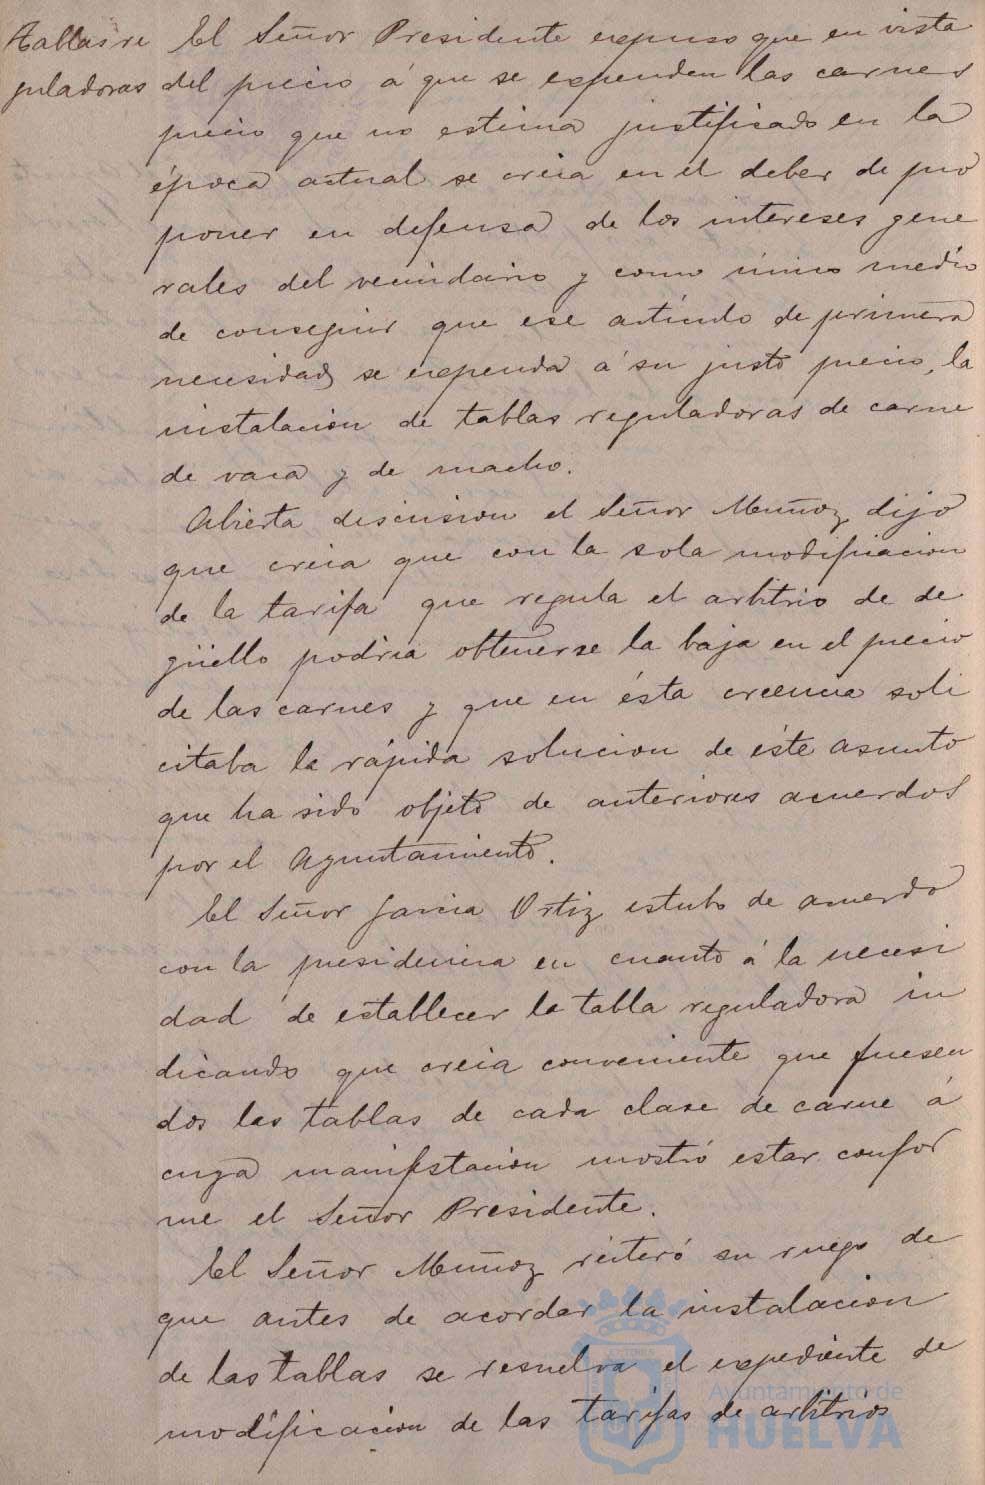 Tablas re
guladoras
El Señor Presidente expuso que en vista
del precio á que se expenden las carnes
precio que no estima justificado en la
época actual se creia en el deber de pro
poner en defensa de los intereses gene
rales del vecindario y como único medio
de conseguir que ese artículo de primera
necesidad se expenda á su justo precio, la
instalacion de tablas reguladoras de carne
de vaca y de macho.
Abierta discusion el Señor Muñoz dijo
que creia que con la sola modificacion
de la tarifa que regula el arbitrio de de
güello podria obtenerse la baja en el precio
de las carnes y que en ésta creencia soli
citaba la rápida solucion de éste asunto
que ha sido objeto de anteriores acuerdos
por el Ayuntamiento.
El Señor Garcia Ortiz estubo de acuerdo
con la presidencia en cuanto á la necesi
dad de establecer la tabla reguladora in
dicando que creia conveniente que fuesen
dos las tablas de cada clase de carne á
cuya manifestacion mostró estar confor
me el Señor Presidente.
El Señor Muñoz reiteró su ruego de
que antes de acordar la instalacion
de las tablas se resuelva el expediente de
modificacion de las tarifas de arbitrios
Ayuntamiento de
HUELVA